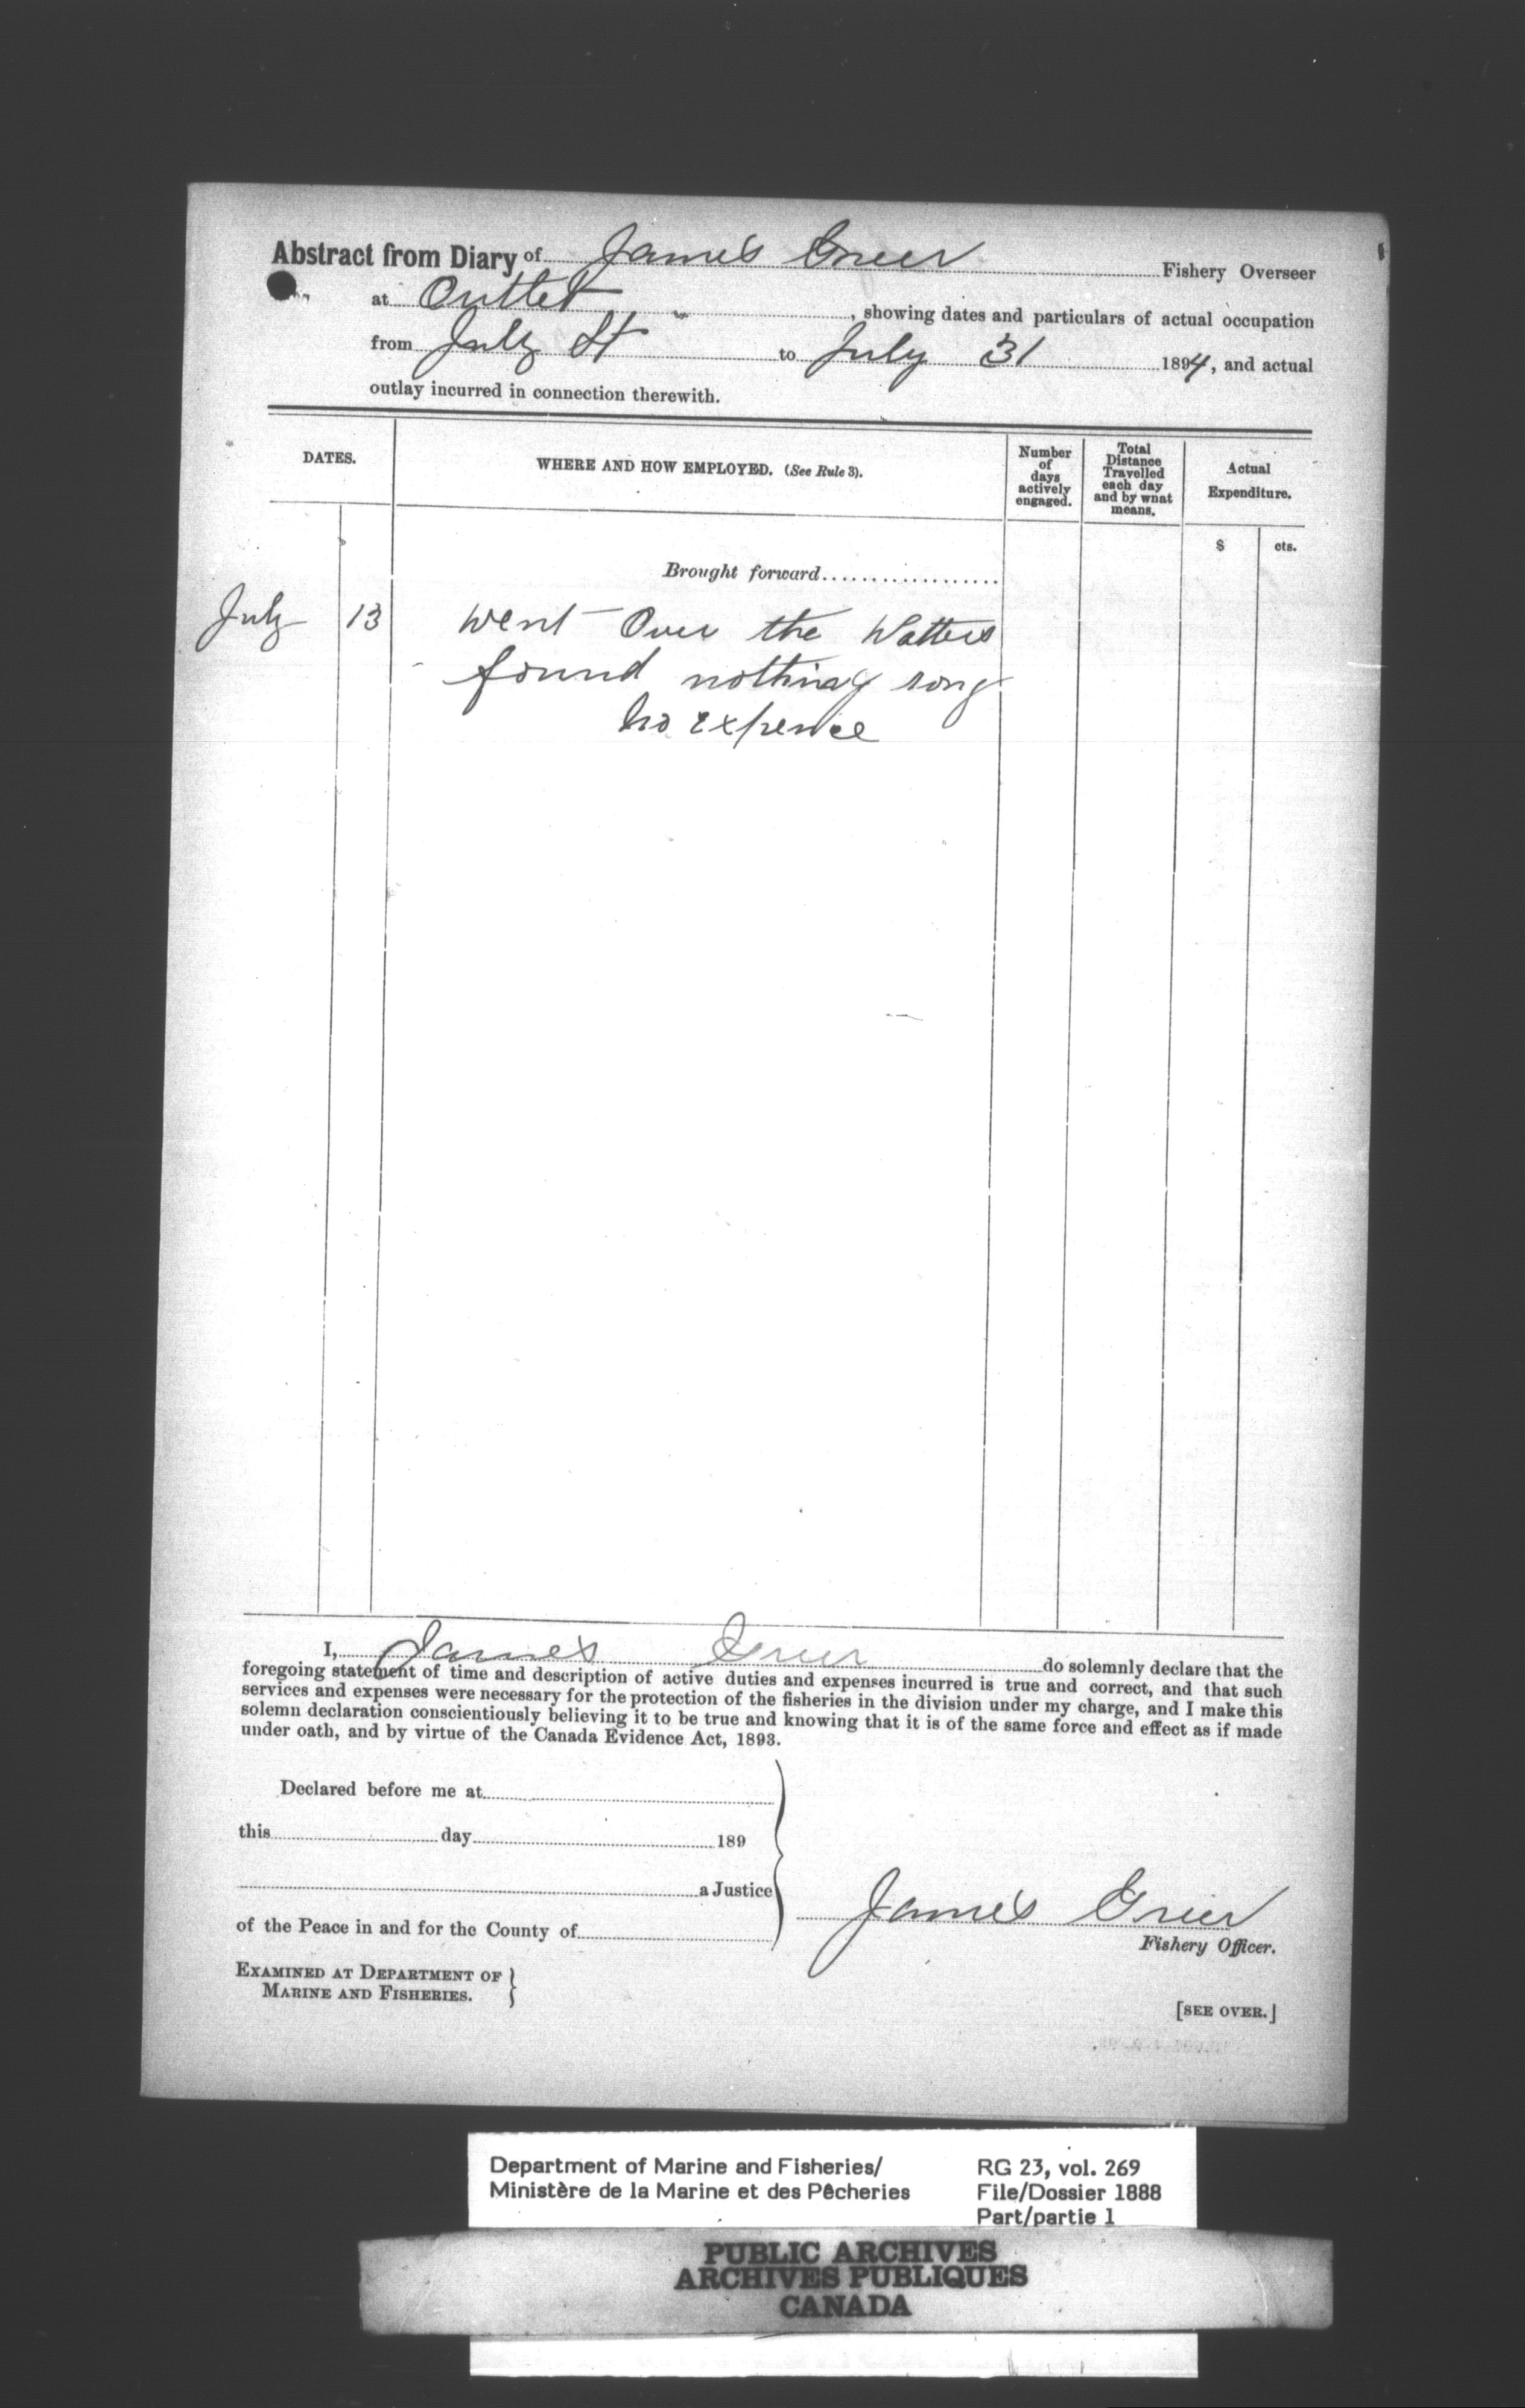 Abstract from Diary of James Greer Fishery Overseer
at Outlet, showing dates and particulars of actual occupation
from July St to July 31 1894, and actual
outlay incurred in connection therewith.
DATES.
WHERE AND HOW EMPLOYED. (See Rule 3).
Number
of
days
actively
engaged.
Total
Distance
Travelled
each day
and by what
means.
Actual
Expenditure.
$ cts.
Brought forward
July 13 went Over the Watters
found nothing rong
no expence
I, James Greer do solemnly declare that the
foregoing statement of time and description of active duties and expenses incurred is true and correct, and that such
services and expenses were necessary for the protection of the fisheries in the division under my charge, and I make this
solemn declaration conscientiously believing it to be true and knowing that it is of the same force and effect as if made
under oath, and by virtue of the Canada Evidence Act, 1893.
Declared before me at
this day 189
a Justice
of the Peace in and for the County of
James Greer
Fishery Officer.
EXAMINED AT DEPARTMENT OF
MARINE AND FISHERIES.
[SEE OVER.]
Department of Marine and Fisheries/
Ministère de la Marine et des Pêcheries
RG 23, vol. 269
File/Dossier 1888
Part/partie 1
PUBLIC ARCHIVES
ARCHIVES PUBLIQUES
CANADA